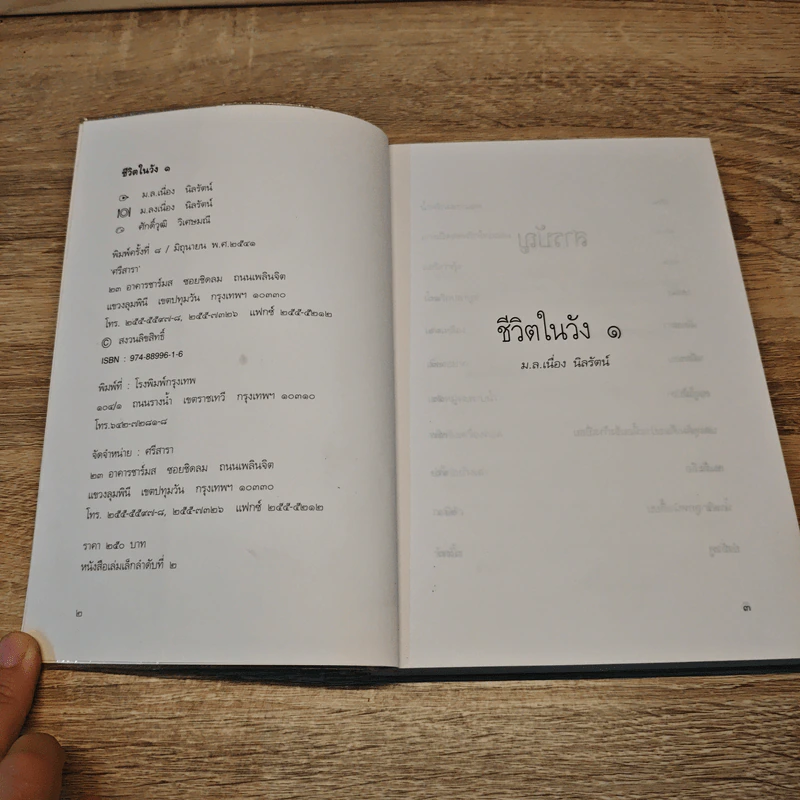 ชีวิตในวัง ๑
ม.ล.เนื่อง นิลรัตน์
ม.ล.เนื่อง นิลรัตน์
ศักดิ์วุฒิ วิเศษมณี
พิมพ์ครั้งที่ ๘ / มิถุนายน พ.ศ.๒๕๔๑
'ศรีสารา'
๒๓ อาคารชาร์มส ซอยชิดลม ถนนเพลินจิต
แขวงลุมพินี เขตปทุมวัน กรุงเทพฯ ๑๐๓๓๐
โทร. ๒๕๕-๕๕๙๗-๘, ๒๕๕-๗๓๒๖ แฟกซ์ ๒๕๕-๕๒๑๒
© สงวนลิขสิทธิ์
ISBN : 974-88996-1-6
พิมพ์ที่ : โรงพิมพ์กรุงเทพ
๑๐๔/๑ ถนนรางน้ำ เขตราชเทวี กรุงเทพฯ ๑๐๓๑๐
โทร.๖๔๒-๗๒๘๑-๘
จัดจำหน่าย : ศรีสารา
๒๓ อาคารชาร์มส ซอยชิดลม ถนนเพลินจิต
แขวงลุมพินี เขตปทุมวัน กรุงเทพฯ ๑๐๓๓๐
โทร. ๒๕๕-๕๕๙๗-๘, ๒๕๕-๗๓๒๖ แฟกซ์ ๒๕๕-๕๒๑๒
ราคา ๒๕๐ บาท
หนังสือเล่มเล็กลำดับที่ ๒
๒
ชีวิตในวัง ๑
ม.ล.เนื่อง นิลรัตน์
๓